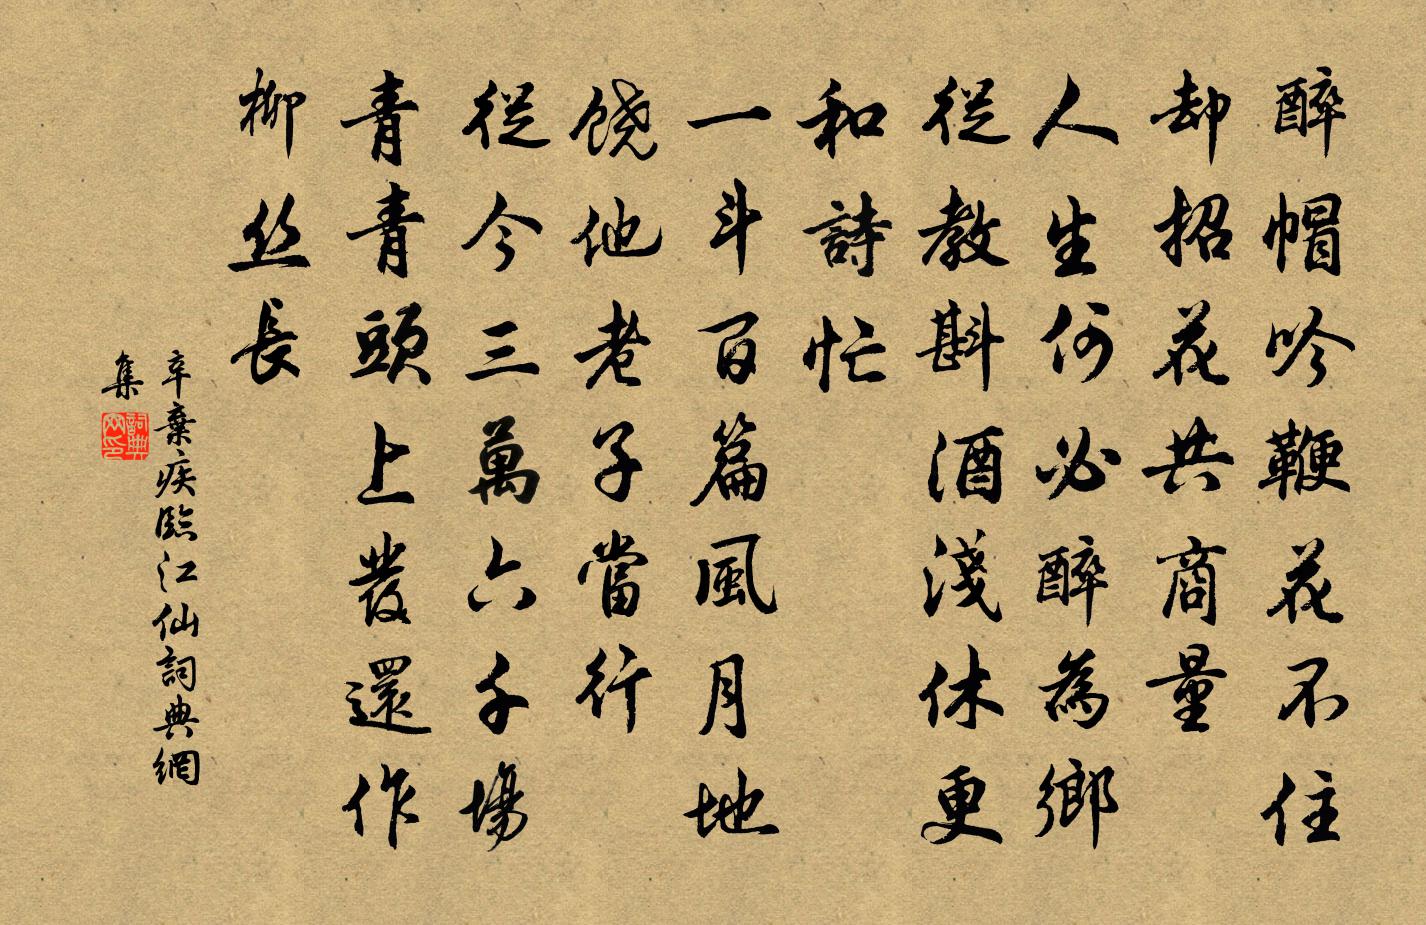 醉帽吟鞭花不住
却招花共商量
人生何必醉為鄉
從教斟酒淺休更
和詩忙
一斗百篇風月地
饒他老子當行
從今三萬六千場
青青頭上髮還作
柳丝長
辛棄疾臨江仙詞典網
集
詞典网印